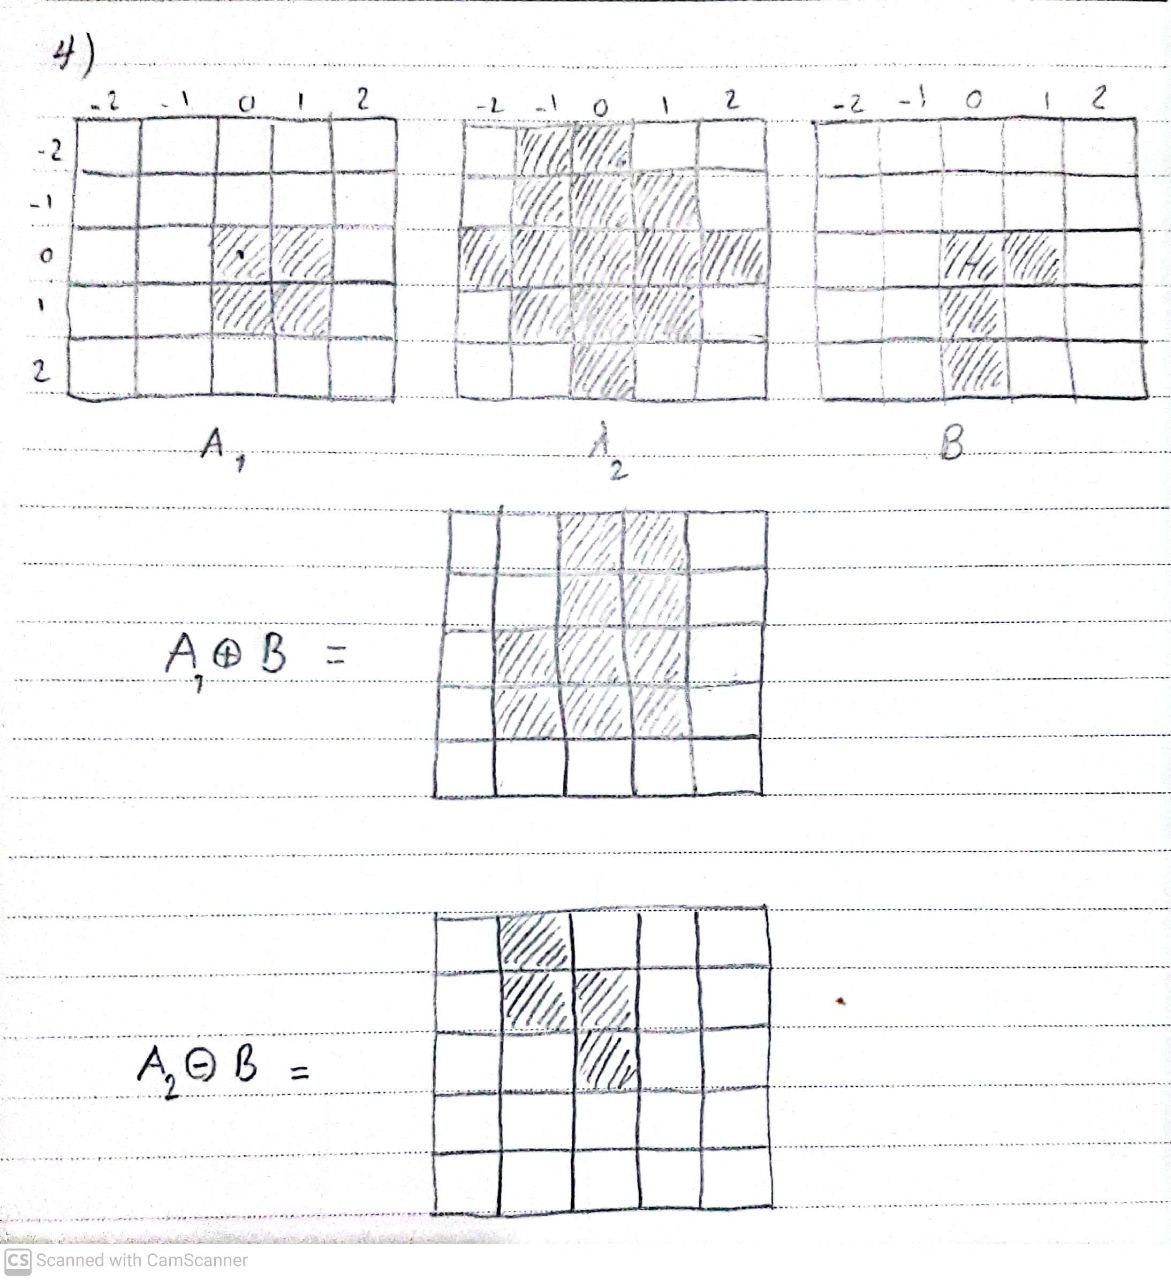 4)
-2 -1 0 1 2 -2 -1 0 1 2 -2 -1 0 1 2
-2
-1
0
1
2
A1 A2 B
A1 ⊕ B =
A2 ⊖ B =
CS Scanned with CamScanner